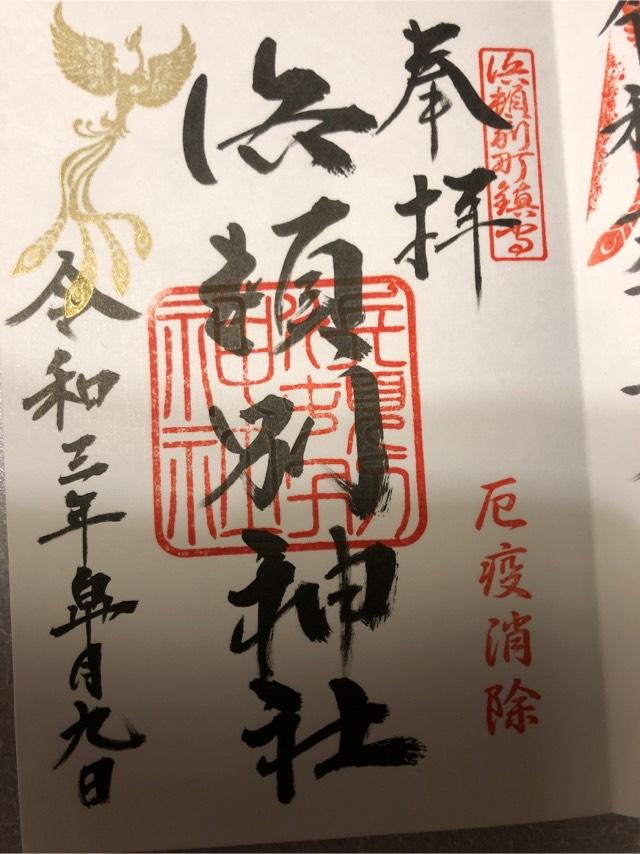 奉拝
浜頓別町鎮守
厄疫消除
浜頓別神社
令和三年皐月九日